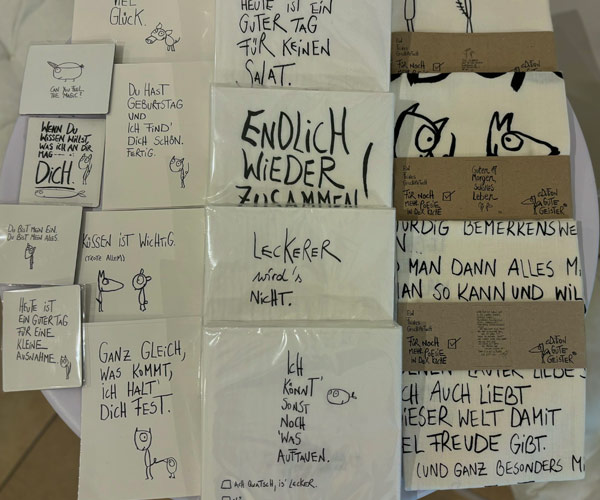 VIEL
GLÜCK.
CAN YOU FEEL
THE MAGIC?
WENN DU
WISSEN WILLST,
WAS ICH AN DIR
MAG
DICH.
DU BIST MEIN EIN.
DU BIST MEIN ALLES.
HEUTE IST
EIN GUTER TAG
FÜR EINE
KLEINE
AUSNAHME.
DU HAST
GEBURTSTAG
UND
ICH FIND'
DICH SCHÖN.
FERTIG.
KÜSSEN IST WICHTIG.
(TROTZ ALLEM)
GANZ GLEICH,
WAS KOMMT,
ICH HALT'
DICH FEST.
HEUTE IST EIN
GUTER TAG
FÜR KEINEN
SALAT.
ENDLICH
WIEDER
ZUSAMMEN!
LECKERER
wird's
NICHT.
ICH
KÖNNT'
SONST
NOCH
'WAS
AUFTAUEN.
ACH QUATSCH, IS' LECKER.
FÜR NOCH
MEHR POESIE
IN DER KÜCHE
EDITION
GUTE
GEISTER
Ein
FÜR NOCH
MEHR POESIE
IN DER KÜCHE
Guten
Morgen
Leben
EDITION
GUTE
GEISTER
WÜRDIG BEMERKENSWE
N
MAN DANN ALLES M
MAN SO KANN UND WIL
Ein
FÜR NOCH
MEHR POESIE
IN DER KÜCHE
EDITION
GUTE
GEISTER
LAUTER LIEBE
ICH AUCH LIEBT
DIESER WELT DAMIT
EL FREUDE GIBT.
(UND GANZ BESONDERS M